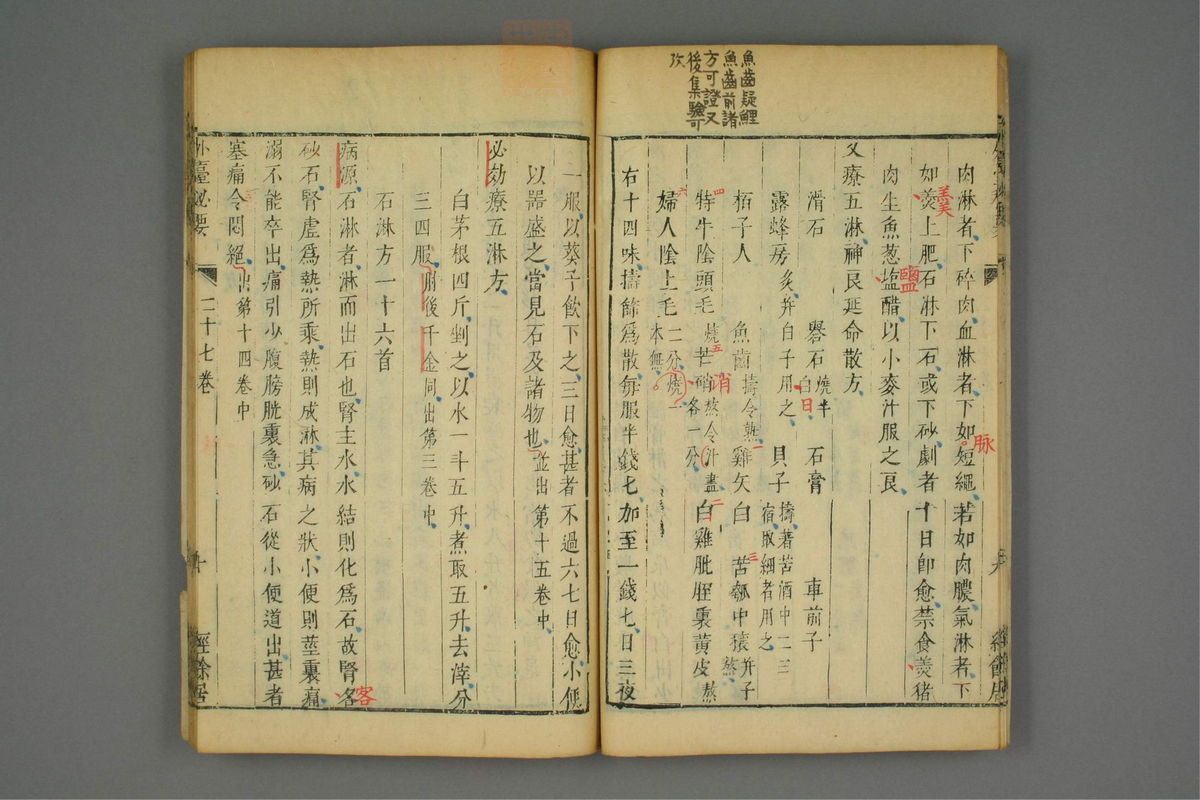 魚齒疑鯉
魚齒前諸
方可證又
後集驗可
攷
肉淋者下碎肉血淋者下如短繩若如肉膿氣淋者下
脉
如羮上肥石淋下石或下砂劇者十日卽愈禁食羮猪
羙
肉生魚葱塩醋以小麥汁服之良
鹽
又療五淋神良延命散方
滑石 礜石燒半日 石膏 車前子
日
露蜂房炙幷白子用之 貝子擣著苦酒中二三宿取細者用之
栢子人 魚齒擣令熟 雞矢白 苦瓠中穰幷子熬
一 三
特牛陰頭毛燒 芒硝熬令汁盡各一分 白雞肶胵裏黃皮熬
四 五 消 二
婦人陰上毛二分燒一本無
六
右十四味擣篩爲散每服半錢匕加至一錢匕日三夜
一服以葵子飮下之三日愈甚者不過六七日愈小便
以器盛之當見石及諸物也並出第十五卷中
必効療五淋方
白茅根四斤剉之以水一斗五升煮取五升去滓分
三四服肘後千金同出第三卷中
石淋方一十六首
病源石淋者淋而出石也腎主水水結則化爲石故腎客
客
砂石腎虛爲熱所乘熱則成淋其病之狀小便則莖裏痛
溺不能卒出痛引少腹膀胱裏急砂石從小便道出甚者
塞痛令悶絕出第十四卷中
外臺必要 二十七卷 十 經餘居